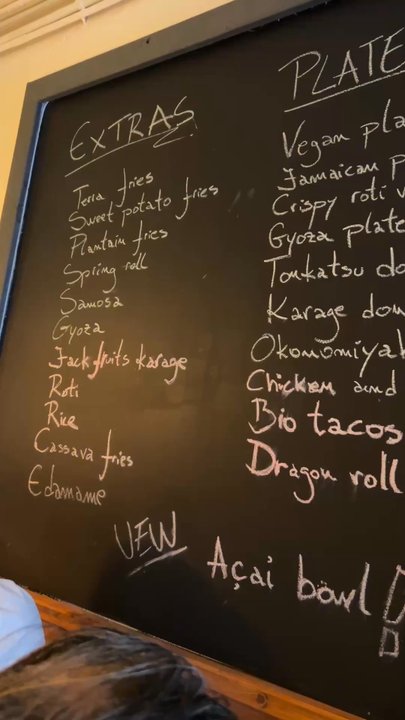 EXTRAS
Terra fries
Sweet potato fries
Plantain fries
Spring roll
Samosa
Gyoza
Jackfruits Karage
Roti
Rice
Cassava fries
Edamame
PLATE
Vegan pla
Jamaican p
Crispy roti
Gyoza plate
Tonkatsu do
Karage dom
Okonomiyak
Chicken and
Bio tacos
Dragon roll
VEW
Açai bowl !